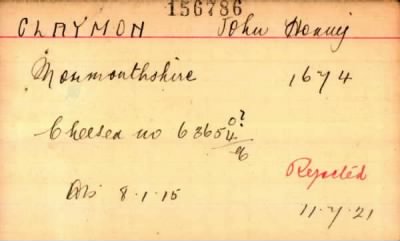 156786
CLAYMON John Henry
Monmouthshire 1674
Chelsea no 63654
0?
Rejected
8.1.15
11.7.21